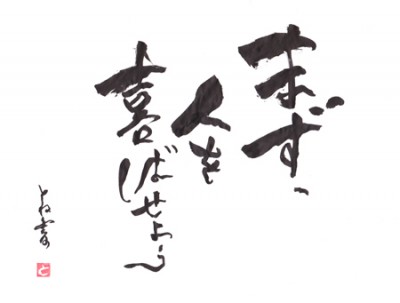 まず、
人を
喜ばせよう
と